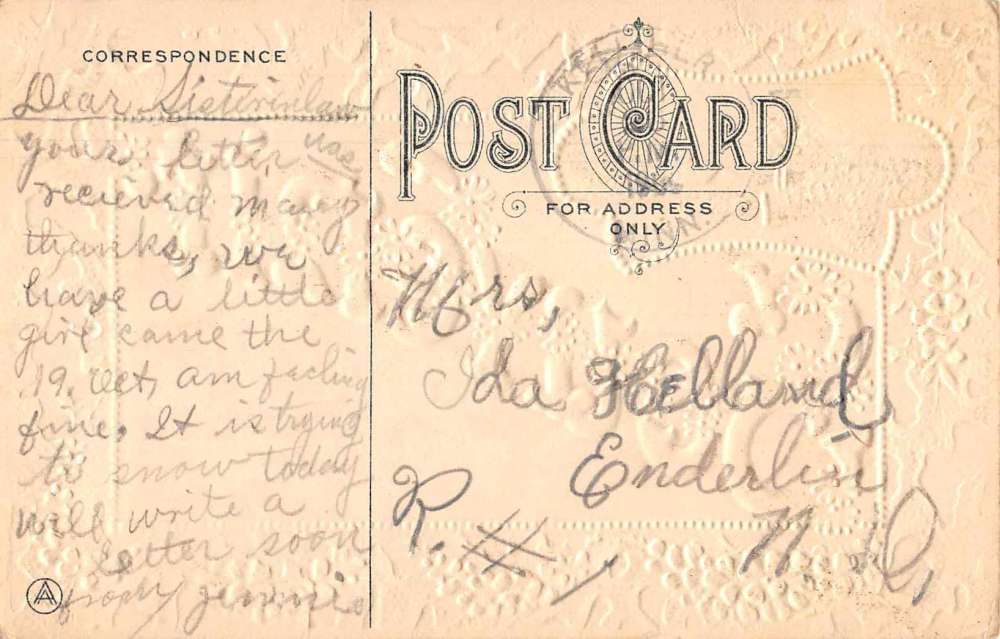 CORRESPONDENCE
Dear Sisterinlaw
your letter was
recieved many
thanks, we
have a little
girl came the
19. Oct, am feeling
fine. It is trying
to snow today
will write a
letter soon
from Jennie
AA
POST CARD
FOR ADDRESS
ONLY
Mrs,
Ida Helland
Enderlin
R. #,
N. D.